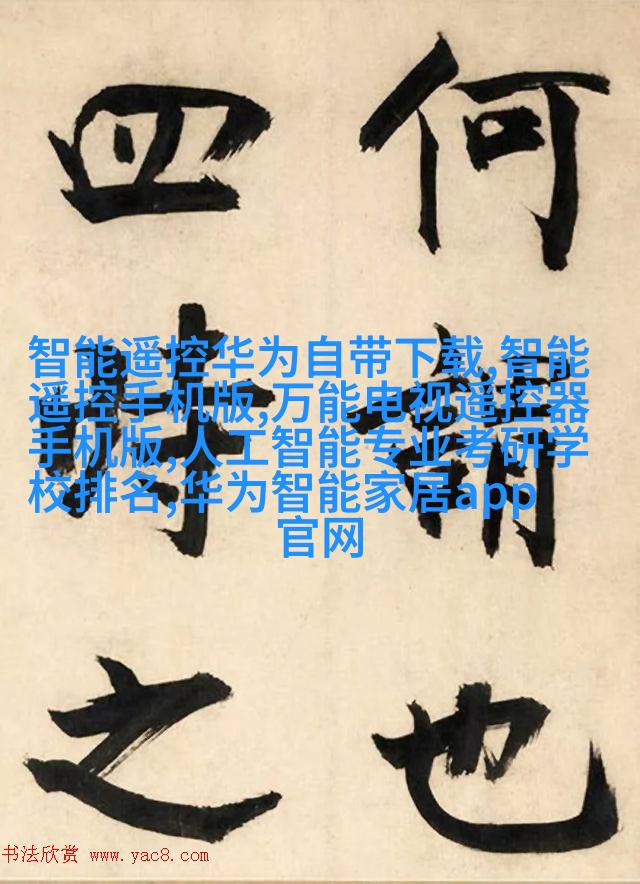 何謂也
四時之
智能遥控华为自带下载,智能
遥控手机版,万能电视遥控器
手机版,人工智能专业考研学
校排名,华为智能家居app
官网
书法欣赏 www.yac8.com